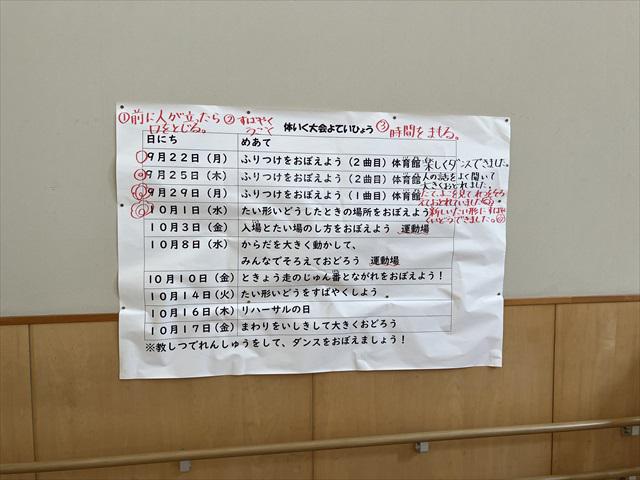 ①前に人が立ったら ②すばやく
口をとじる。 うごく
体いく大会よていひょう ③時間をまもる。
日にち めあて
9月22日（月） ふりつけをおぼえよう（2曲目）体育館 楽しくダンスできました。
9月25日（木） ふりつけをおぼえよう（2曲目）体育館 人の話をよく聞いて
大きくおどれました。
9月29日（月） ふりつけをおぼえよう（1曲目）体育館
10月1日（水） たい形いどうしたときの場所をおぼえよう 新しいたい形に
いどうできました。
10月3日（金） 入場とたい場のし方をおぼえよう 運動場
10月8日（水） からだを大きく動かして、
みんなでそろえておどろう 運動場
10月10日（金） ときょう走のじゅん番とながれをおぼえよう！
10月14日（火） たい形いどうをすばやくしよう
10月16日（木） リハーサルの日
10月17日（金） まわりをいしきして大きくおどろう
※教しつでれんしゅうをして、ダンスをおぼえましょう！